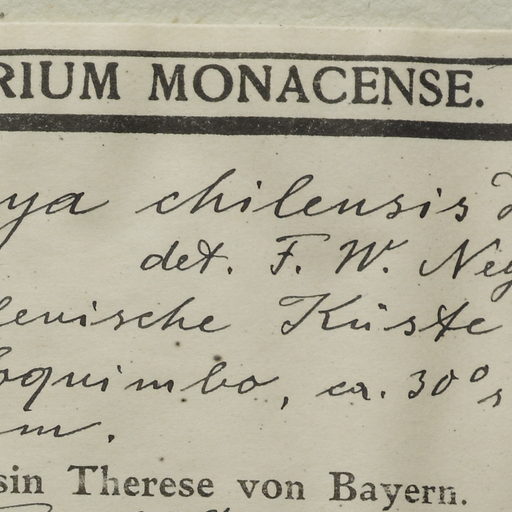 RIUM MONACENSE.
ya chilensis
det. F. W. Neg
lenische Küste
oquimbo, ca. 30° s
m.
sin Therese von Bayern.